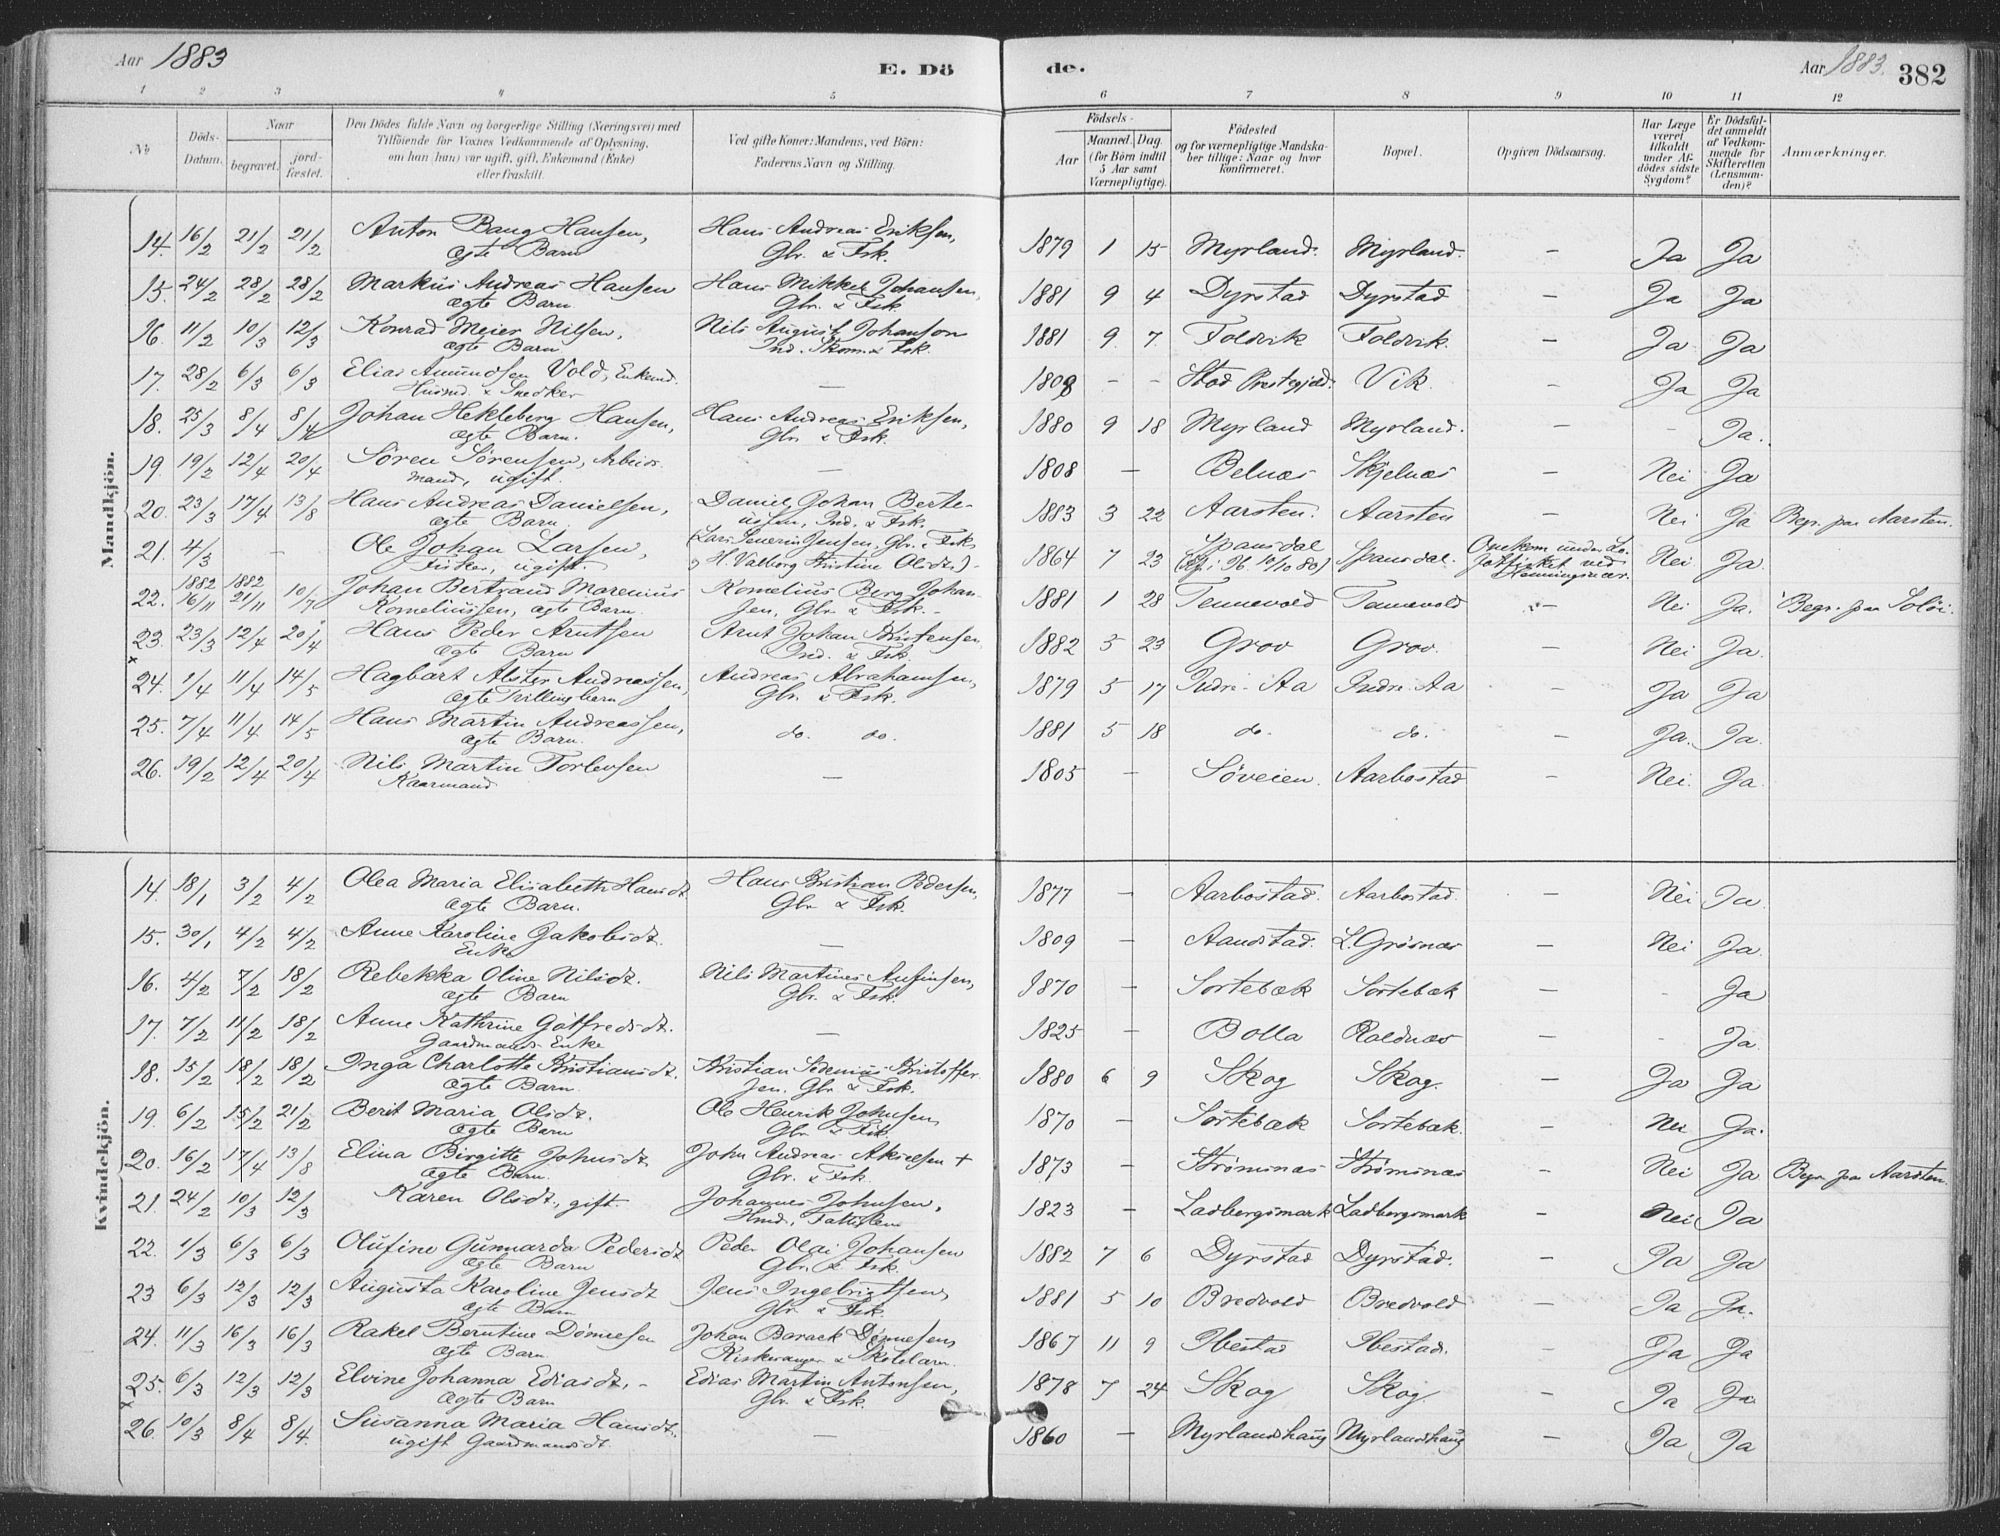 Aar 1883
E. Dö
de.
Aar 1883.
382
1 2 3 4 5 6 7 8 9 10 11 12
No
Döds-Datum.
Naar
begravet.
jord-fæstet.
Den Dödes fulde Navn og borgerlige Stilling (Næringsvei) med
Tilföiende for Voxnes Vedkommende af Oplysning,
om han (hun) var ugift, gift, Enkemand (Enke)
eller fraskilt.
Ved gifte Koner: Mandens, ved Börn:
Faderens Navn og Stilling.
Födsels-
Aar
Maaned. Dag.
(for Börn indtil
5 Aar samt
Værnepligtige).
Födested
og for værnepligtige Mandska-
ber tillige: Naar og hvor
konfirmeret.
Bopæl.
Opgiven Dödsaarsag.
Har Læge
været
tilkaldt
under Af-
dödes sidste
Sygdom?
Er Dödsfal-
det anmeldt
af Vedkom-
mende for
Skifteretten
(Lensman-
den)?
Anmærkninger.
Mandkjön.
14. 16/2 21/2 21/2 Anton Baug Hansen, Hans Andreas Eriksen, 1879 1 15 Myrland. Myrland. – Ja Ja
ægte Barn Gbr. & Fsk.
15. 24/2 28/2 28/2 Markus Andreas Hansen Hans Mikkel Johansen, 1881 9 4 Dyrstad Dyrstad – Ja Ja
ægte Barn Gbr. & Fsk.
16. 11/2 10/3 12/3 Konrad Meier Nilsen, Nils August Johanson 1881 9 7 Foldvik Foldvik. – Ja Ja
ægte Barn Ind. Skom. & Fsk.
17. 28/2 6/3 6/3 Elias Amundsen Vold, Enkemd. – 1808 – – Stod Prestegjæld. Vik. – Ja Ja
Husmd. & Snedker
18. 25/3 8/4 8/4 Johan Hekleberg Hansen, Hans Andreas Eriksen, 1880 9 18 Myrland Myrland. – - Ja.
ægte Barn. Gbr. & Fsk.
19. 19/2 12/4 20/4 Sören Sörensen, Arbeids – 1808 – Belnæs Skjelnæs – Nei Ja
mand, ugift.
20. 23/3 17/4 13/8 Hans Andreas Danielsen, Daniel Johan Berte- 1883 3 22 Aarsten. Aarsten – Nei Ja Begr. paa Aarsten.
ægte Barn Ind. & Fsk.
21. 4/3 – Ole Johan Larsen, (Lars Severin Jensen, Gbr. & Fsk 1864 7 23 Spansdal Spansdal. Omkom under Lo- Nei Ja.
Fisker, ugift. H. Valborg Kristine Olsdt.) 10/10 80) fotfisket ved
Henningsvær.
22. 1882 16/11 1882 21/11 10/7 Johan Bertrand Marenius Kornelius Berg Johan- 1881 1 28 Tennevold Tennevold – Nei Ja. Begr. paa Soløi.
Korneliussen, ægte Barn. sen, Gbr. & Fsk. –
23. 23/3 12/4 20/4 Hans Peder Arntsen Arnt Johan Kristensen 1882 5 23 Grov Grov. – Nei Ja.
ægte Barn Ind. & Fsk.
24. 1/4 11/4 14/5 Hagbart Alster Andreassen, Andreas Abrahamsen, 1879 5 17 Indre-Aa Indre-Aa – Ja Ja
ægte Tvillingbarn Gbr. & Fsk.
25. 7/4 11/4 14/5 Hans Martin Andreassen, do. do. 1881 5 18 do. do. – Ja. Ja.
ægte Barn.
26. 19/2 12/4 20/4 Nils Martin Torlevsen – 1805 – Söveien. Aarbostad – Nei. Ja.
Kaarmand
Kvindekjön.
14. 18/1 3/2 4/2 Olea Maria Elisabeth Hansdt. Hans Kristian Pedersen, 1877 – Aarbostad. Aarbostad. – Nei Ja.
ægte Barn. Gbr. & Fsk.
15. 30/1 4/2 4/2 Anne Karoline Jakobsdt. – 1809 – Aanstad. L. Grösnæs – Nei Ja.
Enke
16. 4/2 7/2 18/2 Rebekka Oline Nilsdt. Nils Martines Anfinsen, 1870 – Sortebæk Sortebæk – - Ja
ægte Barn Gbr. & Fsk.
17. 7/2 11/2 18/2 Anne Kathrine Gotfredsdt. – 1825 – Bolla Roldnæs – - Ja.
Gaardmands Enke
18. 15/2 18/2 18/2 Inga Charlotte Kristiansdt. Kristian Kristoffer- 1880 6 9 Skog Skog. – Ja Ja
ægte Barn. sen. Gbr. & Fsk.
19. 6/2 15/2 21/2 Berit Maria Olsdt. Ole Henrik Johnsen, 1870 – Sortebæk Sortebæk. – Nei Ja.
ægte Barn Gbr. & Fsk.
20. 16/2 17/4 13/8 Elina Birgitte Johnsdt. John Andreas Akselsen + 1873 – Strömnæs Strömnæs – Nei Ja Begr. paa Aarsten.
ægte Barn. Gbr. & Fsk.
21. 24/2 10/3 12/3 Karen Olsdt, gift. Johannes Johnsen, 1823 – Ladbergsmark Ladbergsmark – Nei Ja
Hmd, Fattiglem
22. 1/3 6/3 6/3 Olufine Gunnarda Pedersdt. Peder Olai Johansen 1882 7 6 Dyrstad Dyrstad. – Ja Ja
ægte Barn Gbr. & Fsk.
23 6/3 12/3 12/3 Augusta Karoline Jensdt Jens Ingebrigtsen, 1881 5 10 Bredvold Bredvold – Ja Ja.
ægte Barn Gbr. & Fsk
24. 11/3 16/3 16/3 Rakel Berntine Dönnesen Johan Barack Dönnesen 1867 11 9 Ibestad Ibestad. – Ja Ja
ægte Barn Kirkesanger & Skolelærer.
25. 6/3 12/3 12/3 Elvine Johanna Ediasdt. – Edias Martin Antonsen, 1878 7 24 Skog Skog. – Ja Ja.
ægte Barn Gbr. & Fsk.
26. 10/3 8/4 8/4. Susanna Maria Hansdt. – 1860 – Myrlandshaug Myrlandshaug – Ja. Ja
ugift Gaardmandsdt.